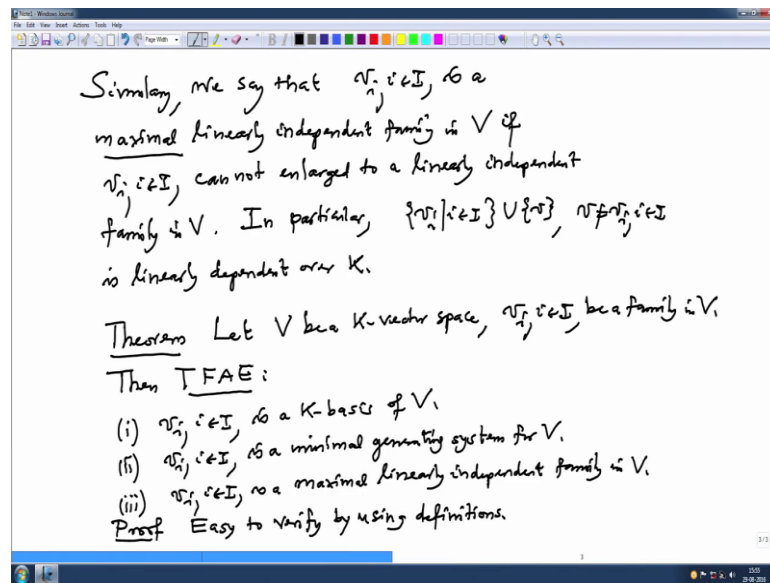 Note1 - Windows Journal
File Edit View Insert Actions Tools Help
Page Width
Similary, we say that v_i, i∈I, is a
maximal linearly independent family in V if
v_i, i∈I, cannot enlarged to a linearly independent
family in V. In particular, {v_i | i∈I} ∪ {v}, v ≠ v_i, i∈I
is linearly dependent over K.
Theorem Let V be a K-vector space, v_i, i∈I, be a family in V.
Then TFAE:
(i) v_i, i∈I, is a K-basis of V.
(ii) v_i, i∈I, is a minimal generating system for V.
(iii) v_i, i∈I, is a maximal linearly independent family in V.
Proof Easy to verify by using definitions.
3/3
3
15:55
29-08-2019